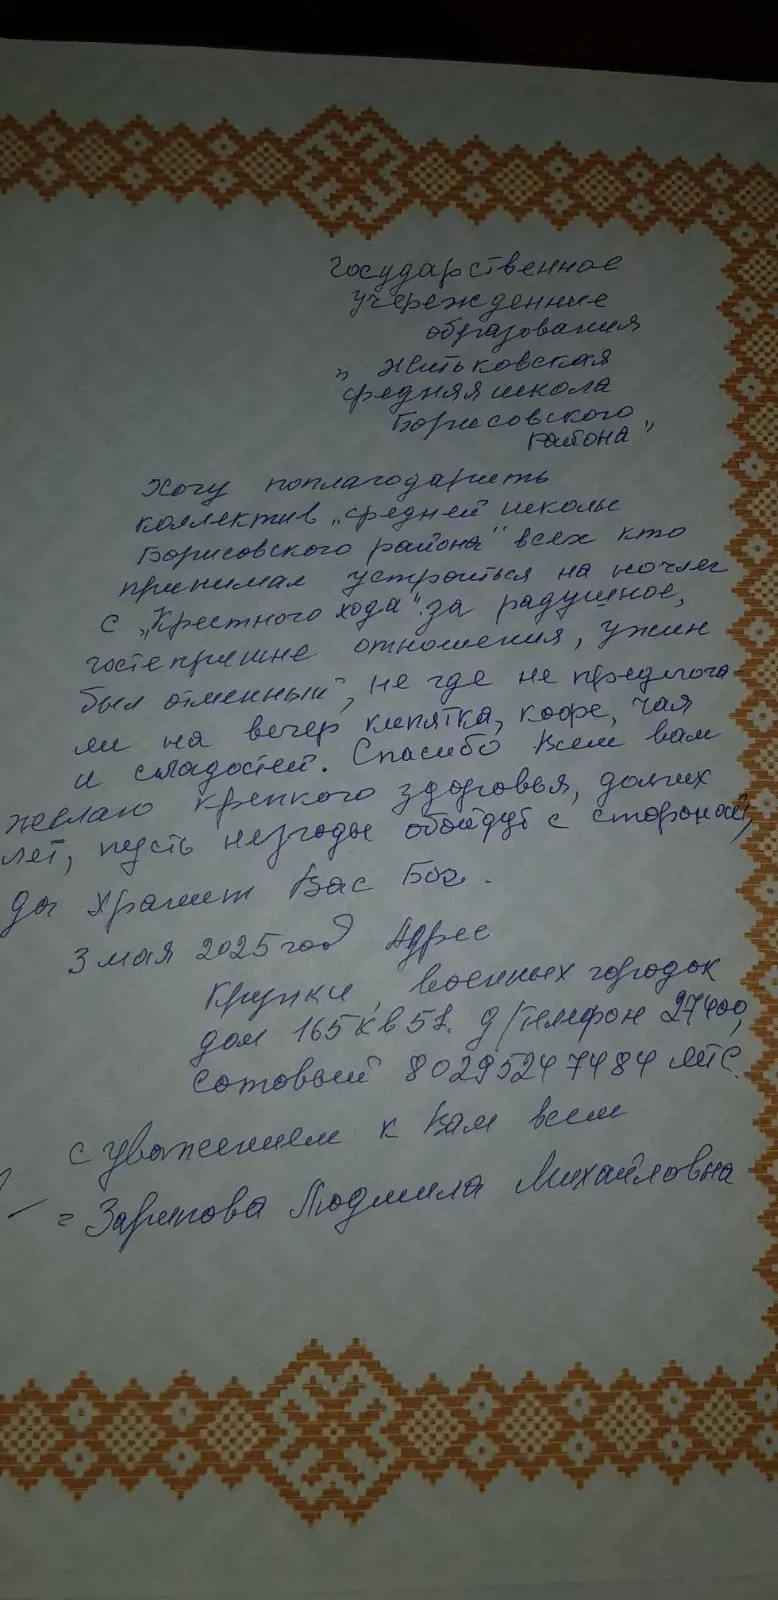 Государственное
учережденние
образования
„Житьковская
средняя школа
Борисовского
района"
Хочу поплагодарить
коллектив „средней школы
Борисовского района" всех кто
принимал устроиться на ночлег
с „Крестного хода" за радушное,
гостеприимне отношения, ужин
был отменный, не где не предлога
ли на вечер кипятка, кофе, чая
и сладостей. Спасибо всем вам
желаю крепкого здоровья, долгих
лет, пусть незгоды обойдут с стороной,
да хранит Вас Бог.
3 мая 2025 год Адрес
Крупки, военных городок
дом 165 кв 51. д/тилфон 27400,
сотовый 80295247484 МТС.
с уважением к Вам всем
= Зарипова Людмила Михайловна